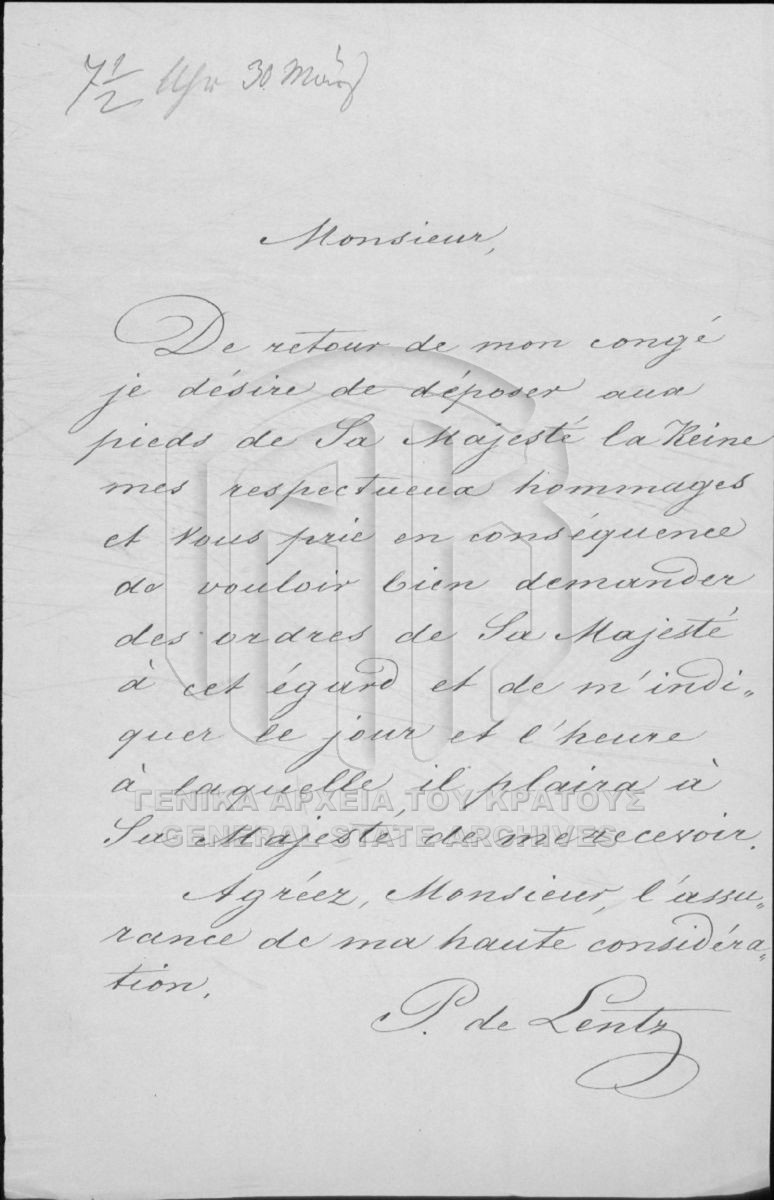 7 1/2 Uhr 30. März
Monsieur,
De retour de mon congé
je désire de déposer aux
pieds de Sa Majesté la Reine
mes respectueux hommages
et Vous prie en conséquence
de vouloir bien demander
des ordres de Sa Majesté
à cet égard et de m'indi„
quer le jour et l'heure
à laquelle, il plaira à
ΓΕΝΙΚΑ ΑΡΧΕΙΑ ΤΟΥ ΚΡΑΤΟΥΣ
Sa Majesté, de me recevoir.
GENERAL STATE ARCHIVES
Agréez, Monsieur, l'assu„
rance de ma haute considéra„
tion.
P. de Lentz